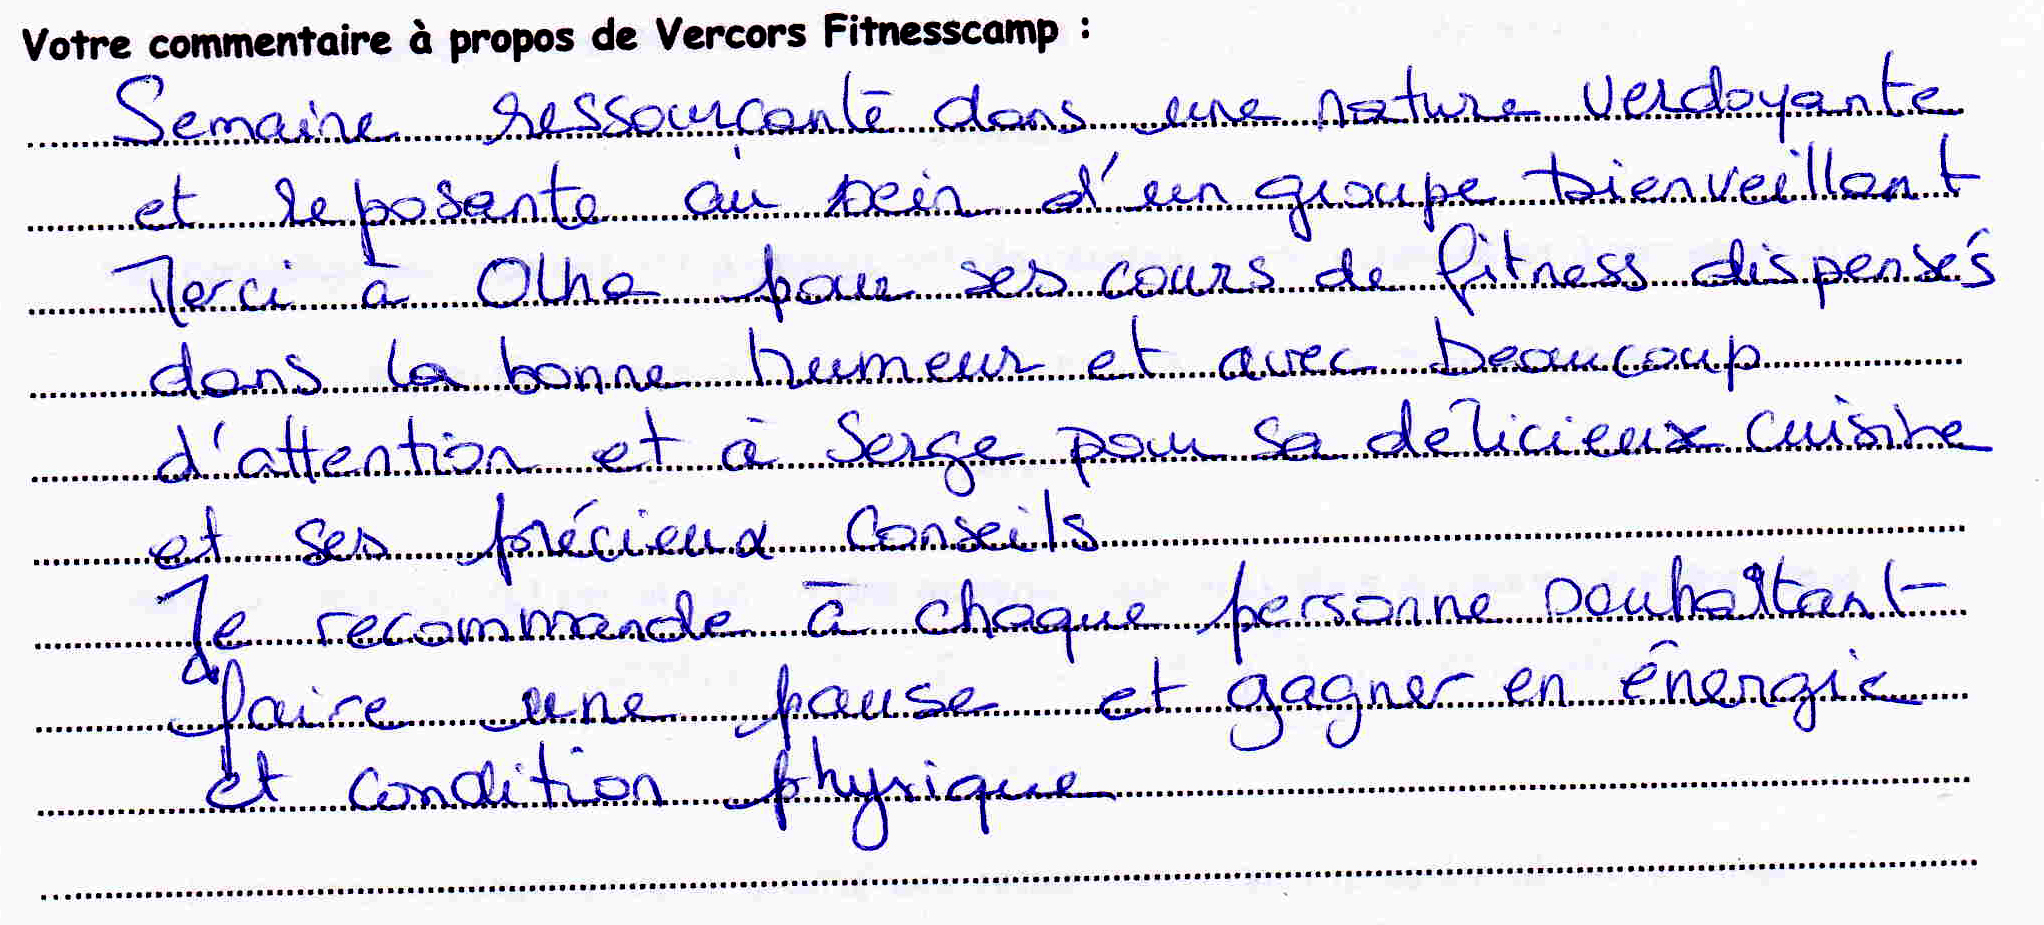 Votre commentaire à propos de Vercors Fitnesscamp :
Semaine ressourçante dans une nature verdoyante
et reposante au sein d'un groupe bienveillant
Merci à Olha pour ses cours de fitness dispensés
dans la bonne humeur et avec beaucoup
d'attention et à Serge pour sa délicieux cuisine
et ses précieux conseils
Je recommande à chaque personne souhaitant
faire une pause et gagner en énergie
et condition physique